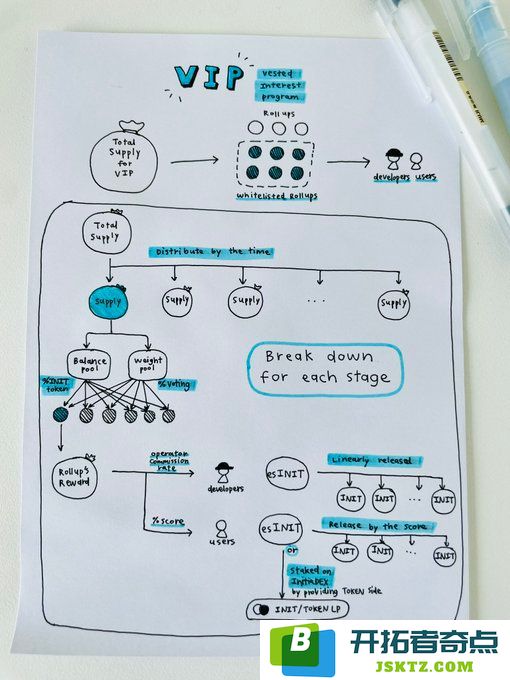 VIP
Vested
Interest
program
Rollups
Total
Supply
for
VIP
developers users
Whitelisted Rollups
Total
Supply
Distribute by the time
Supply
Supply
Supply
...
Supply
Balance
pool
Weight
pool
%INIT
token
%Voting
Break down
for each stage
Rollup's
Reward
operator
Commission
rate
developers
esINIT
Linearly released
INIT
INIT
...
INIT
%score
users
esINIT
Release by the score
INIT
INIT
...
INIT
or
Staked on
InitiaDEX
by providing TOKEN side
INIT/TOKEN LP
B
开拓者奇点
JSKTZ.COM